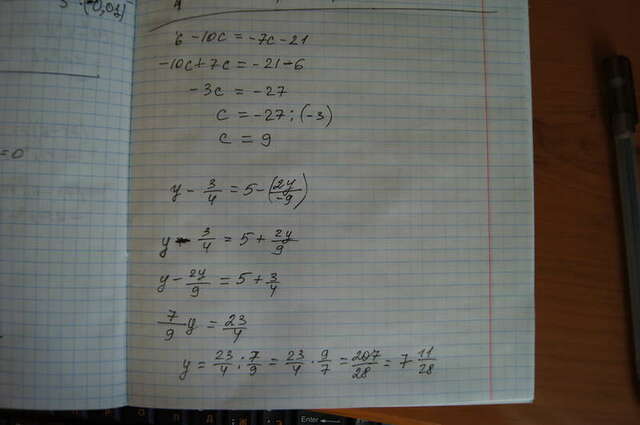 5·(-0,01)
4
6 - 10c = -7c - 21
-10c + 7c = -21 - 6
-3c = -27
c = -27 : (-3)
c = 9
= 0
y - 3/4 = 5 - (2y/-9)
y - 3/4 = 5 + 2y/9
y - 2y/9 = 5 + 3/4
7/9 y = 23/4
y = 23/4 : 7/9 = 23/4 · 9/7 = 207/28 = 7 11/28
Enter